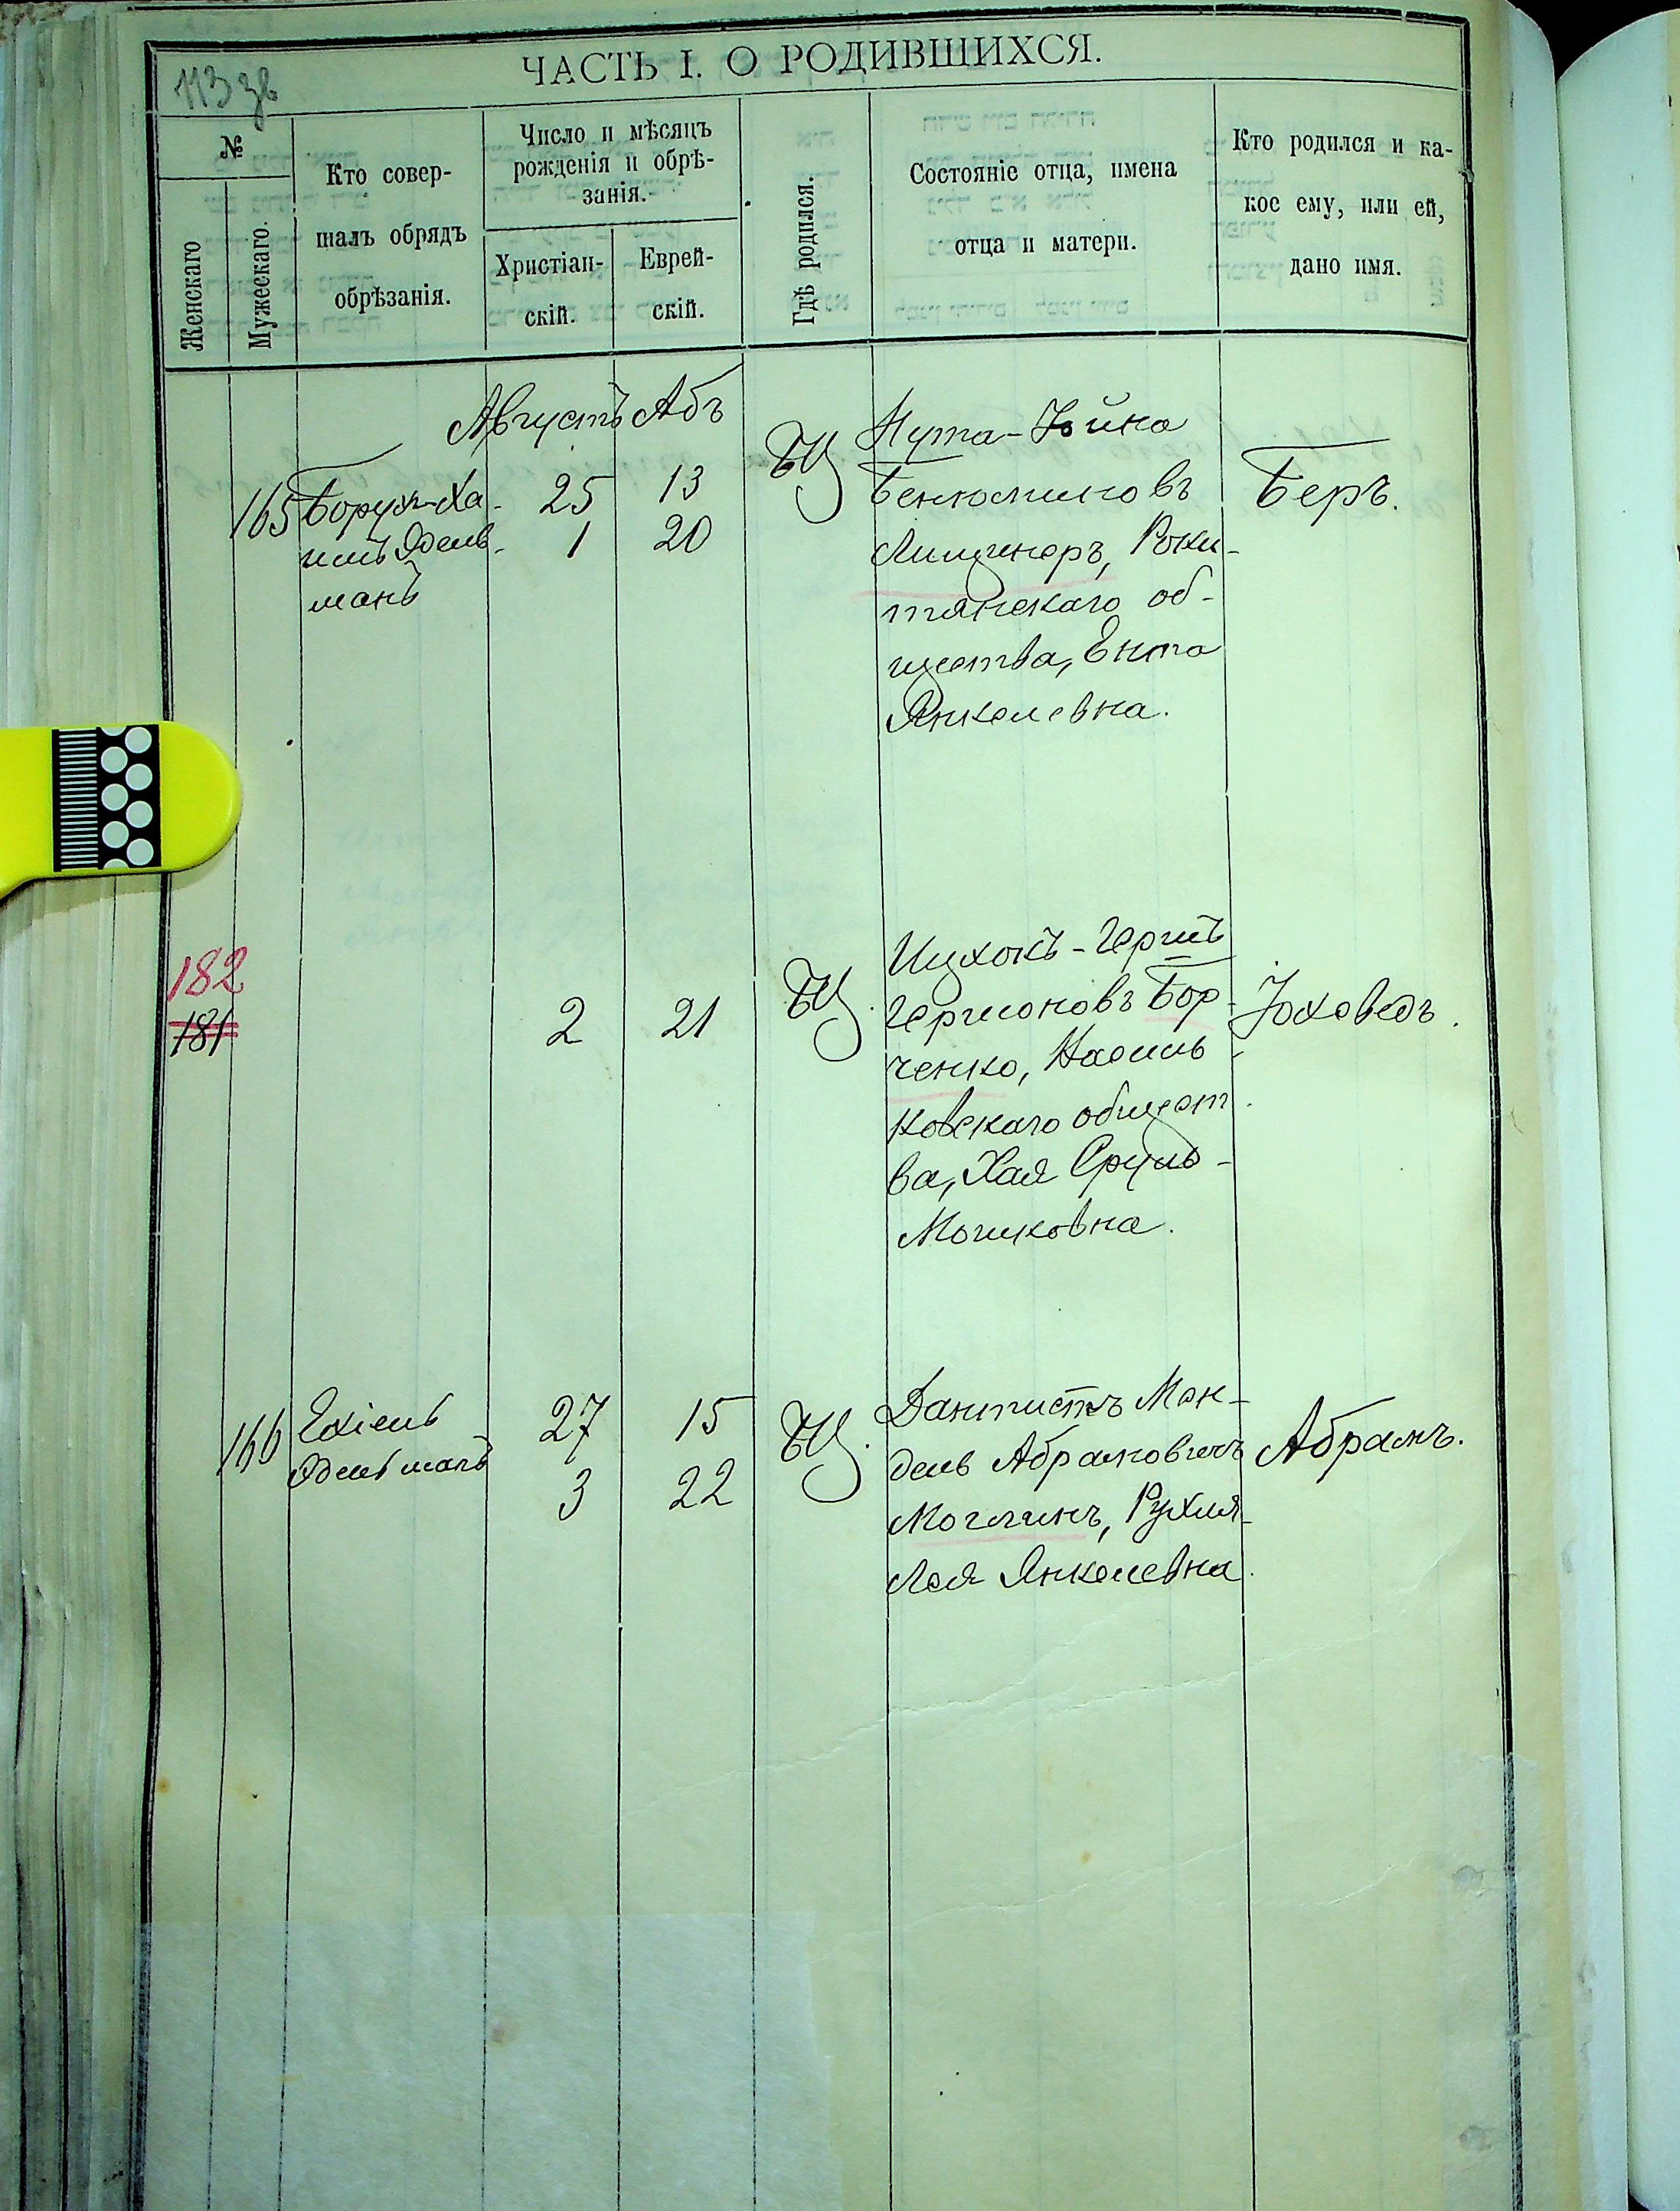 113 зв
ЧАСТЬ I. О РОДИВШИХСЯ.
№
Женскаго
Мужескаго.
Кто совер-
шалъ обрядъ
обрѣзанія.
Число и мѣсяцъ
рожденія и обрѣ-
занія.
Христіан-
скій.
Еврей-
скій.
Гдѣ родился.
Состояніе отца, имена
отца и матери.
Кто родился и ка-
кое ему, или ей,
дано имя.
Августъ Абъ
165
Борухъ-Ха-
имъ Эдель-
манъ
25 13
1 20
Нута-Іойна
Бенюминовъ
Лищинеръ, Роки-
тянскаго об-
щества, Ента
Янкелевна.
Беръ.
182
181
2 21
Ицхокъ-Гершъ
Гершоновъ Бор-
ченко,
ковскаго общест-
ва, Хая Сруль-
Мошковна.
Іоховедъ.
166
Ехіель
Эдельманъ
27 15
3 22
Дантистъ Мен-
дель Абрамовичъ
Моглинъ, Рухля-
Лея Янкелевна.
Абрамъ.